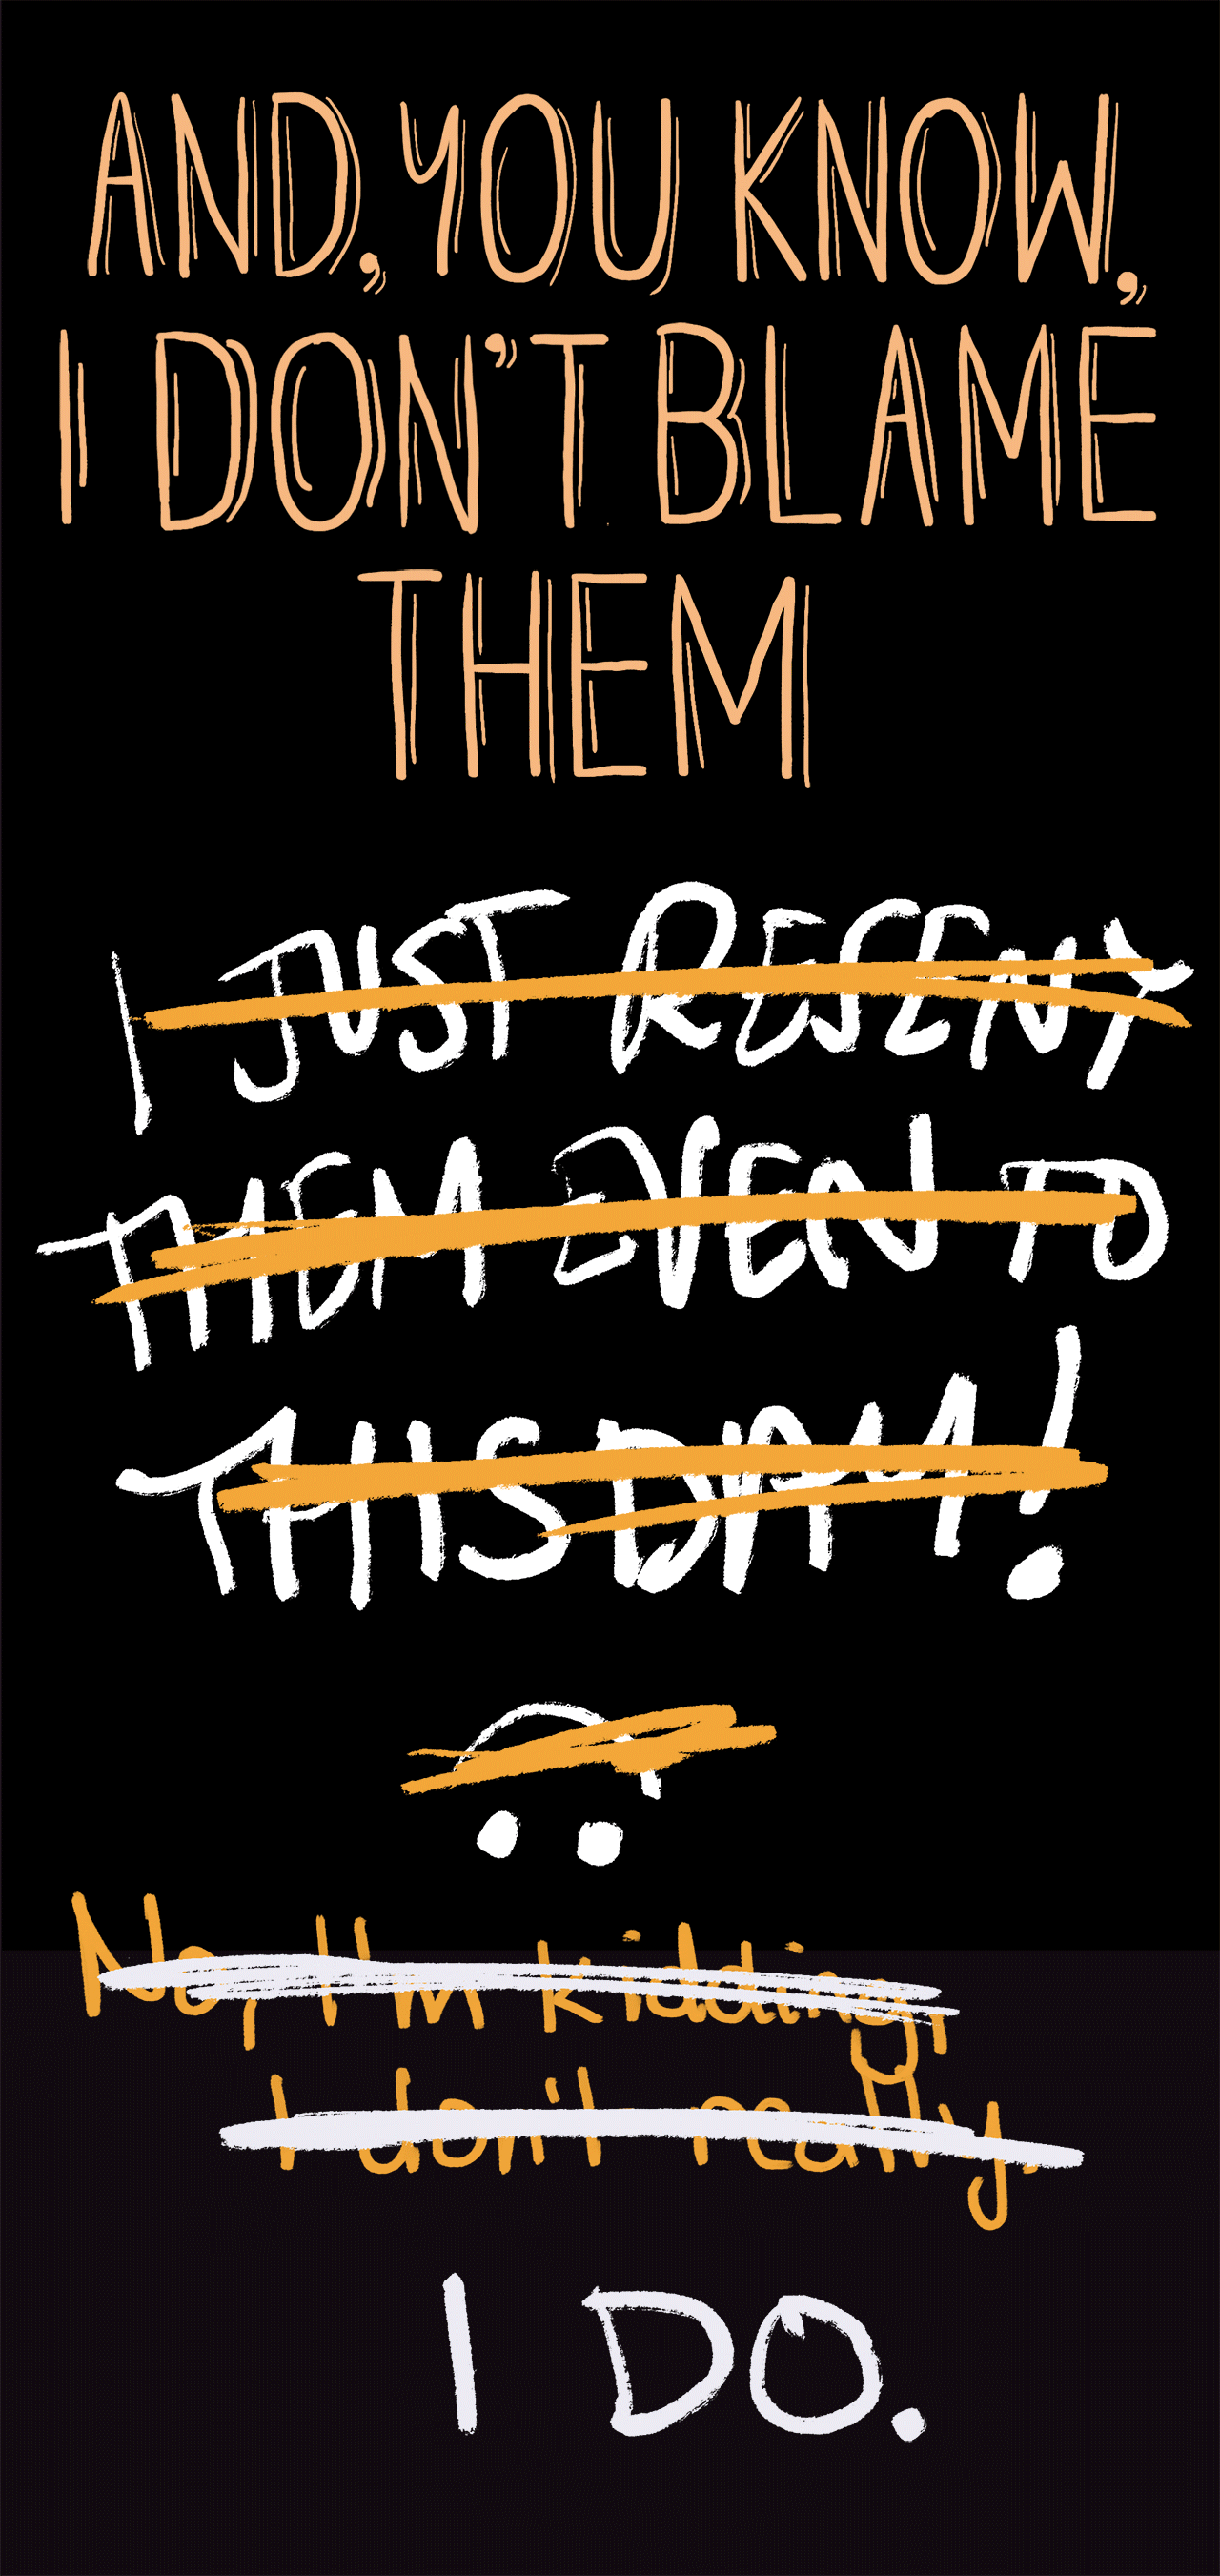 AND, YOU KNOW,
I DON'T BLAME
THEM
I JUST RESENT
THEM EVEN TO
THIS DAY!
No, I'm kidding,
I don't really.
I DO.